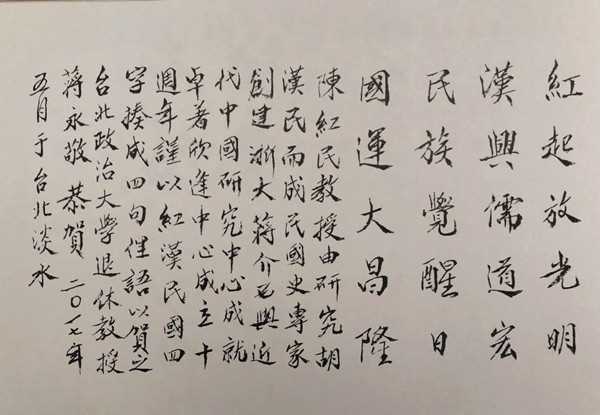 紅起放光明
漢興儒道宏
民族覺醒日
國運大昌隆
陳紅民教授由研究胡
漢民而成民國史專家
創建浙大蔣介石與近
代中國研究中心成就
卓著欣逢中心成立十
週年謹以紅漢民國四
字揍成四句俚語以賀之
台北政治大學退休教授
蔣永敬 恭賀 二〇一七年
五月于台北淡水